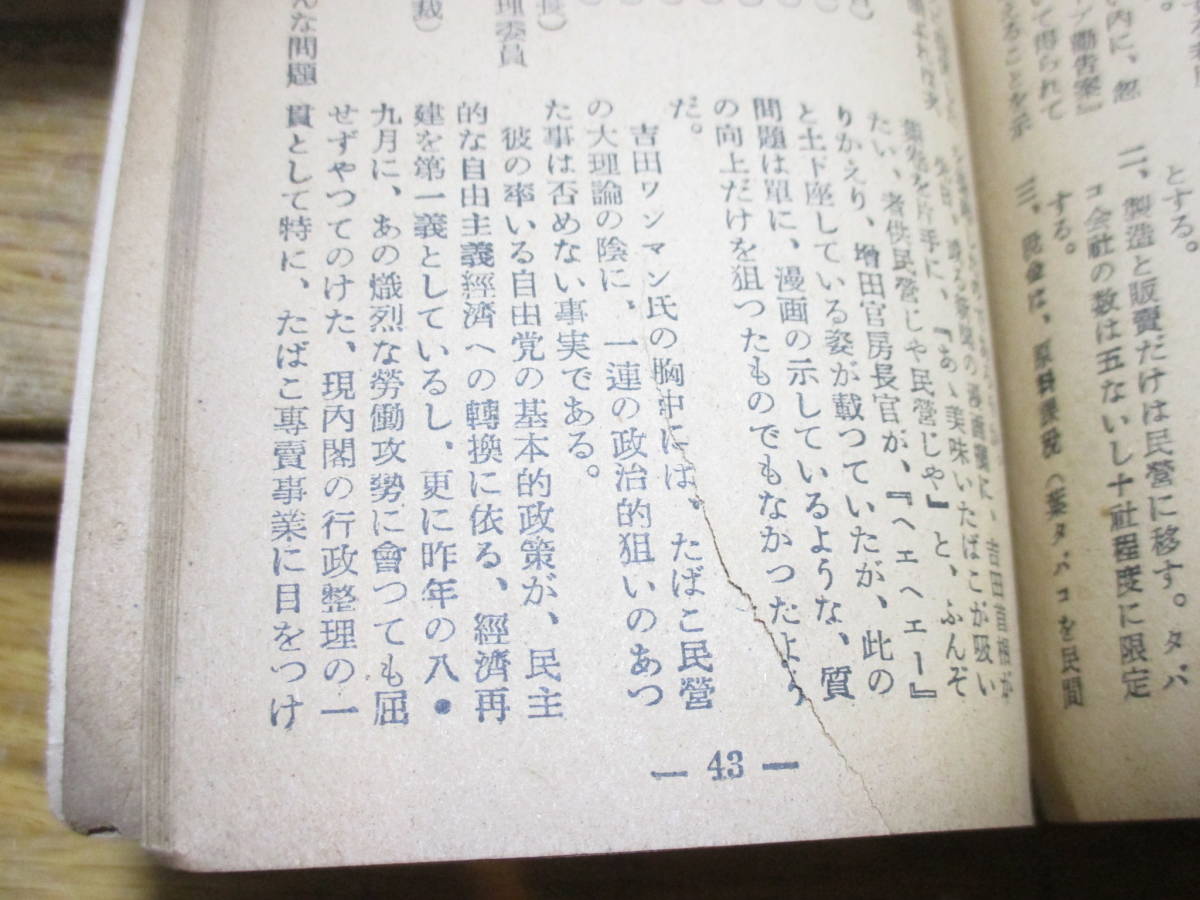 い内に、忽
ブ勧告案』
いて得られて
えることを示
とする。
二、製造と販賣だけは民營に移す。タバ
コ会社の数は五ないし十社程度に限定
する。
三、税金は、原料課税（葉タバコを民間
先日、或る新聞の漫画欄に、吉田首相が
を片手に、『あゝ美味いたばこが吸い
たい、者供民營じや民營じや』と、ふんぞ
りかえり、増田官房長官が、『ヘエヘエー』
と土ド座している姿が載つていたが、此の
問題は單に、漫画の示しているような、質
の向上だけを狙つたものでもなかつたよう
だ。
吉田ワンマン氏の胸中には、たばこ民營
の大理論の陰に、一連の政治的狙いのあつ
た事は否めない事実である。
彼の率いる自由党の基本的政策が、民主
的な自由主義經濟への轉換に依る、經濟再
建を第一義としているし、更に昨年の八・
九月に、あの熾烈な勞働攻勢に會つても屈
せずやつてのけた、現内閣の行政整理の一
貫として特に、たばこ専賣事業に目をつけ
理委員
裁）
んな問題
— 43 —